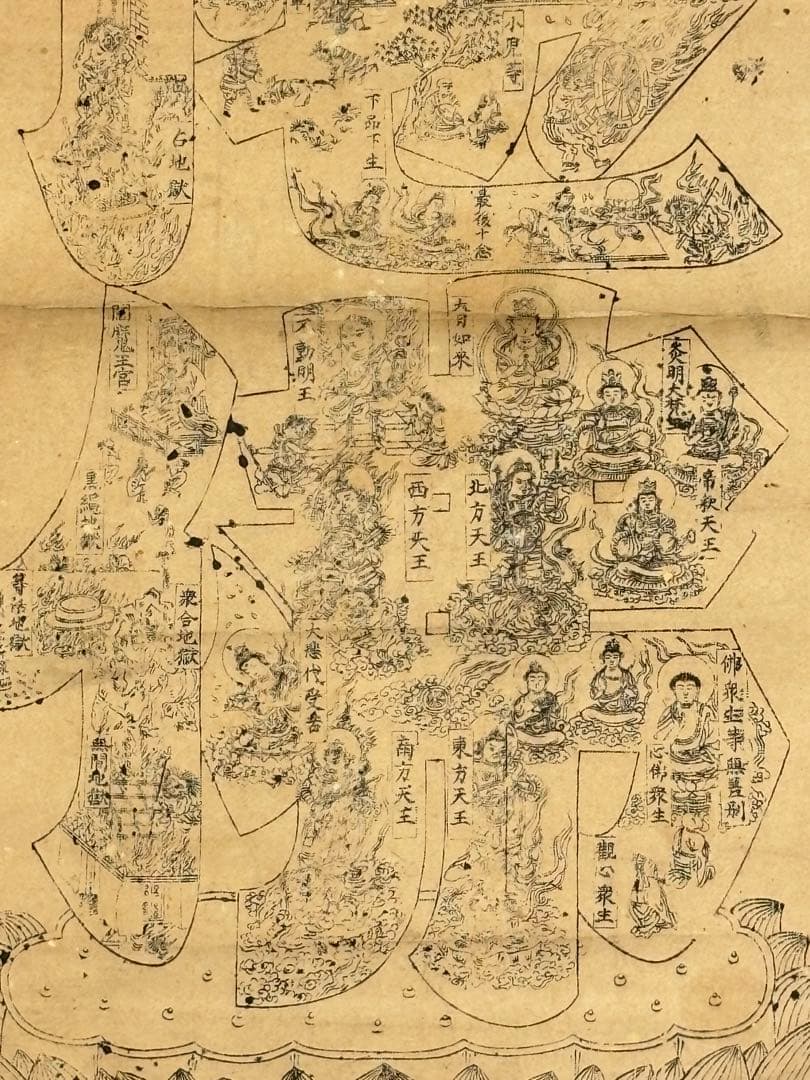 小児等
下品下生
占地獄
最後十念
大日如來
不動明王
閻魔王宮
炎明大
帝釈天王
北方天王
西方天王
黒縄地獄
等活地獄
衆合地獄
大悲代受苦
佛衆生寺無差別
心佛衆生
東方天王
南方天王
無間地獄
觀心衆生